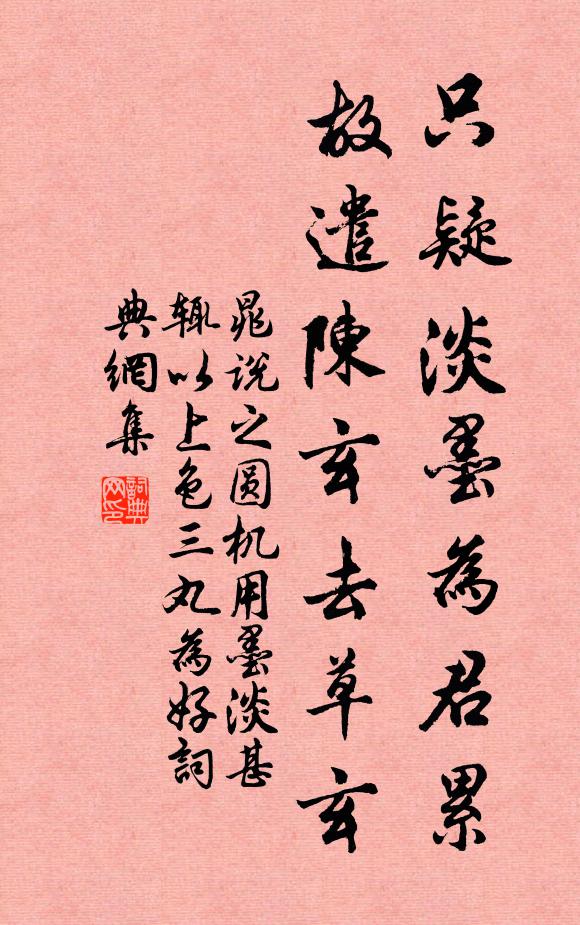 只疑淡墨為君累
故遣陳玄去草玄
晁说之圆机用墨淡甚
辄以上色三丸為好詞
典網集
詞典网印